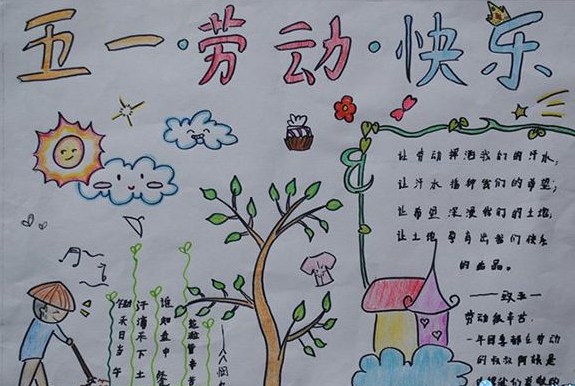 五一·劳动·快乐
让劳动挥洒我们的汗水,
让汗水播种我们的希望;
让希望深浸我们的土地,
让土地孕育出我们快乐
的出品。
——致五一
劳动很辛苦.
一年四季都在劳动
的叔叔阿姨是
锄禾日当午
汗滴禾下土
谁知盘中
粒粒皆辛苦